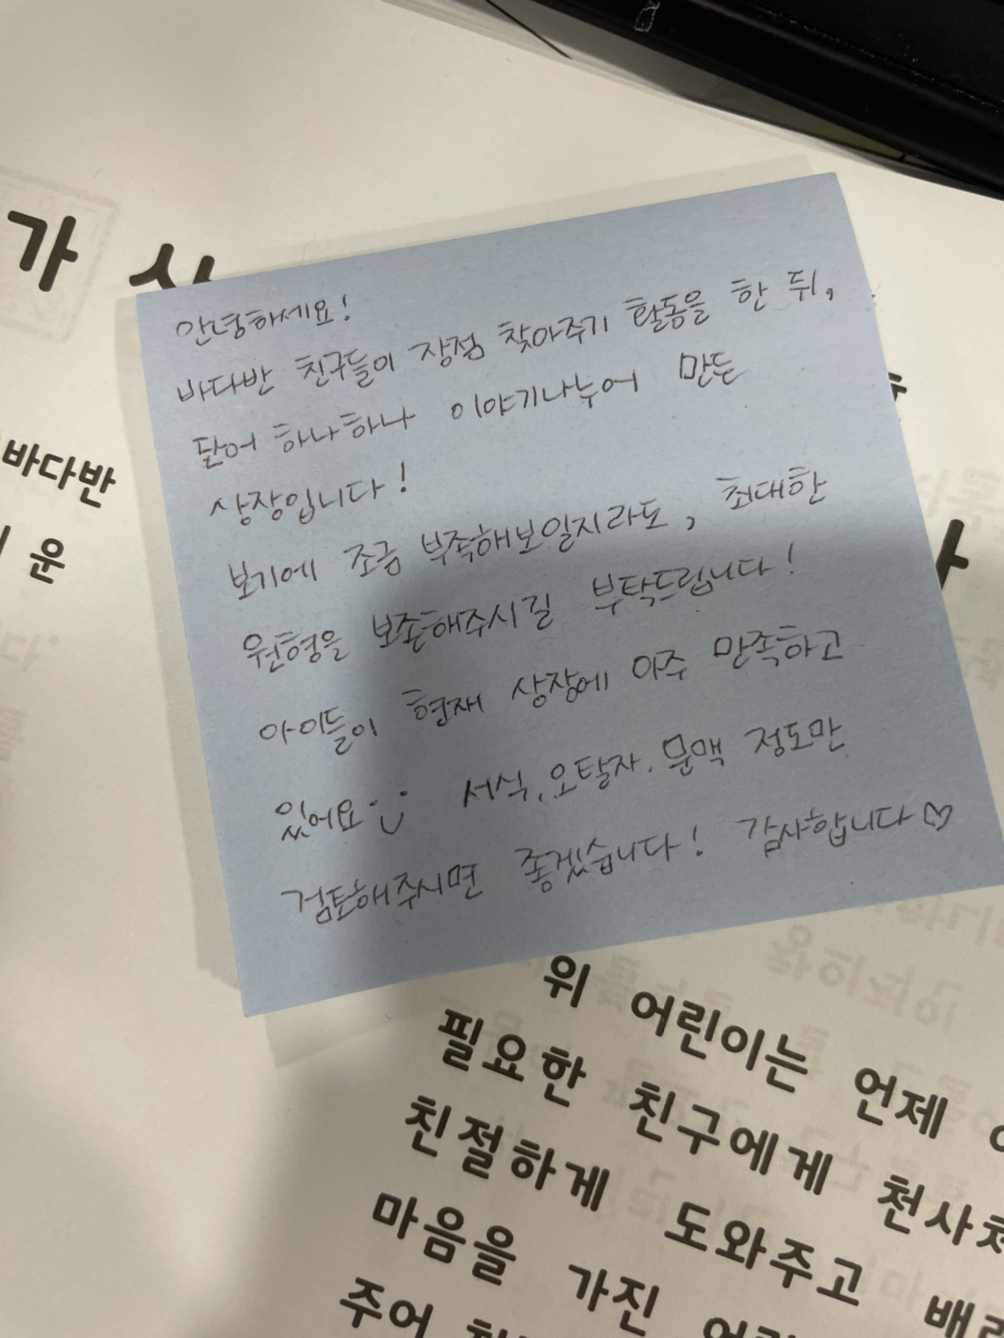 가 사
안녕하세요!
바다반 친구들이 장점 찾아주기 활동을 한 뒤,
단어 하나하나 이야기나누어 만든
상장입니다!
보기에 조금 부족해보일지라도, 최대한
원형을 보존해주시길 부탁드립니다!
아이들이 현재 상장에 아주 만족하고
있어요 서식, 오탈자. 문맥 정도만
검토해주시면 좋겠습니다! 감사합니다♡
바다반
운
위 어린이는 언제
필요한 친구에게 천사처
친절하게 도와주고 배려
마음을 가진
주어